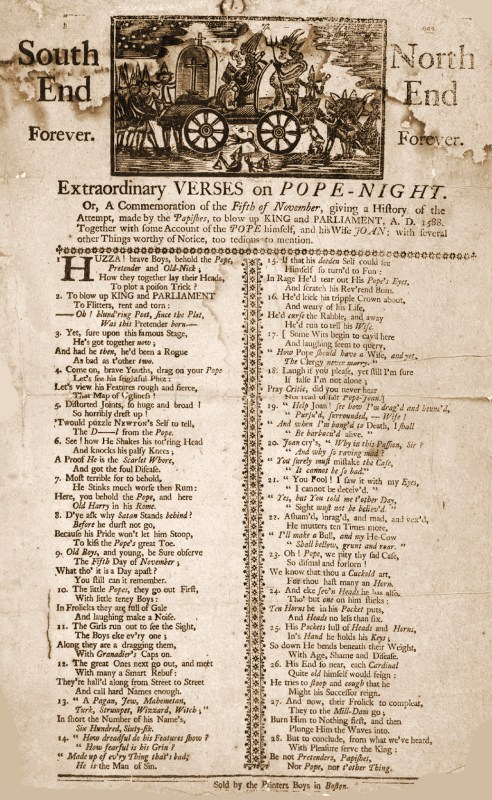 South
End
Forever.
North
End
Forever.
Extraordinary VERSES on POPE-NIGHT.
Or, A Commemoration of the Fifth of November, giving a History of the
Attempt, made by the Papishes, to blow up KING and PARLIAMENT, A. D. 1588.
Together with some Account of the POPE himself, and his Wife JOAN; with several
other Things worthy of Notice, too tedious to mention.
HUZZA! brave Boys, behold the Pope,
Pretender and Old-Nick;
How they together lay their Heads,
To plot a poison Trick?
2. To blow up KING and PARLIAMENT
To Flitters, rent and torn:
—Oh! blund'ring Poet, since the Plot,
Was this Pretender born.—
3. Yet, sure upon this famous Stage,
He's got together now;
And had he then, he'd been a Rogue
As bad as t'other two.
4. Come on, brave Youths, drag on your Pope
Let's see his frightful Phiz:
Let's view his Features rough and fierce,
That Map of Ugliness!
5. Distorted Joints, so huge and broad!
So horribly drest up!
'Twould puzzle NEWTON's Self to tell,
The D——l from the Pope.
6. See! how He Shakes his tot'ring Head
And knocks his palsy Knees;
A Proof He is the Scarlet Whore,
And got the foul Disease.
7. Most terrible for to behold,
He Stinks much worse then Rum:
Here, you behold the Pope, and here
Old Harry in his Rome.
8. D'ye ask why Satan Stands behind?
Before he durst not go,
Because his Pride won't let him Stoop,
To kiss the Pope's great Toe.
9. Old Boys, and young, be Sure observe
The Fifth Day of November;
What tho' it is a Day apast?
You still can it remember.
10. The little Popes, they go out First,
With little teney Boys:
In Frolicks they are full of Gale
And laughing make a Noise.
11. The Girls run out to see the Sight,
The Boys eke ev'ry one;
Along they are a dragging them,
With Granadier's Caps on.
12. The great Ones next go out, and meet
With many a Smart Rebuf:
They're hall'd along from Street to Street
And call hard Names enough.
13. "A Pagan, Jew, Mahometan,
Turk, Strumpet, Wizzard, Witch;"
In short the Number of his Name's,
Six Hundred, Sixty-six.
14. "How dreadful do his Features show?
"How fearful is his Grin?
"Made up of ev'ry Thing that's bad;
He is the Man of Sin.
15. If that his deeden Self could see
Himself so turn'd to Fun:
In Rage He'd tear out His Pope's Eyes,
And scratch his Rev'rend Bum.
16. He'd kick his tripple Crown about,
And weary of his Life,
He'd curse the Rabble, and away
He'd run to tell his Wife.
17. [Some Wits begin to cavil here
And laughing seem to query,
"How Pope should have a Wife, and yet,
The Clergy never marry."
18. Laugh if you please, yet still I'm sure
If false I'm not alone;
Pray Critic, did you never hear
Nor read of fair Pope-Joan.]
19. "Help Joan! see how I'm drag'd and bounc'd,
"Pursu'd, surrounded,—Wife!
"And when I'm bang'd to Death, I shall
"Be barbacu'd alive."
20. Joan cry's, "Why in this Passion, Sir?
"And why so raving mad?
"You surely must mistake the Case,
"It cannot be so bad."
21. "You Fool! I saw it with my Eyes,
"I cannot be deceiv'd."
"Yes, but You told me t'other Day,
"Sight must not be believ'd."
22. Asham'd, inrag'd, and mad, and vex'd,
He mutters ten Times more.
"I'll make a Bull, and my He-Cow
"Shall bellow, grunt and roar."
23. Oh! Pope, we pity thy sad Case,
So dismal and forlorn!
We know that thou a Cuckold art,
For thou hast many an Horn.
24. And eke sev'n Heads he has also,
Tho' but one on him sticks:
Ten Horns he in his Pocket puts,
And Heads no less than six.
25. His Pockets full of Heads and Horns,
In's Hand he holds his Keys;
So down He bends beneath their Weight,
With Age, Shame and Disease.
26. His End so near, each Cardinal
Quite old himself would feign:
He tries to stoop and cough that he
Might his Successor reign.
27. And now, their Frolick to compleat,
They to the Mill-Dam go;
Burn Him to Nothing first, and then
Plunge Him the Waves into.
28. But to conclude, from what we've heard,
With Pleasure serve the King:
Be not Pretenders, Papishes,
Nor Pope, nor t'other Thing.
Sold by the Printers Boys in Boston.